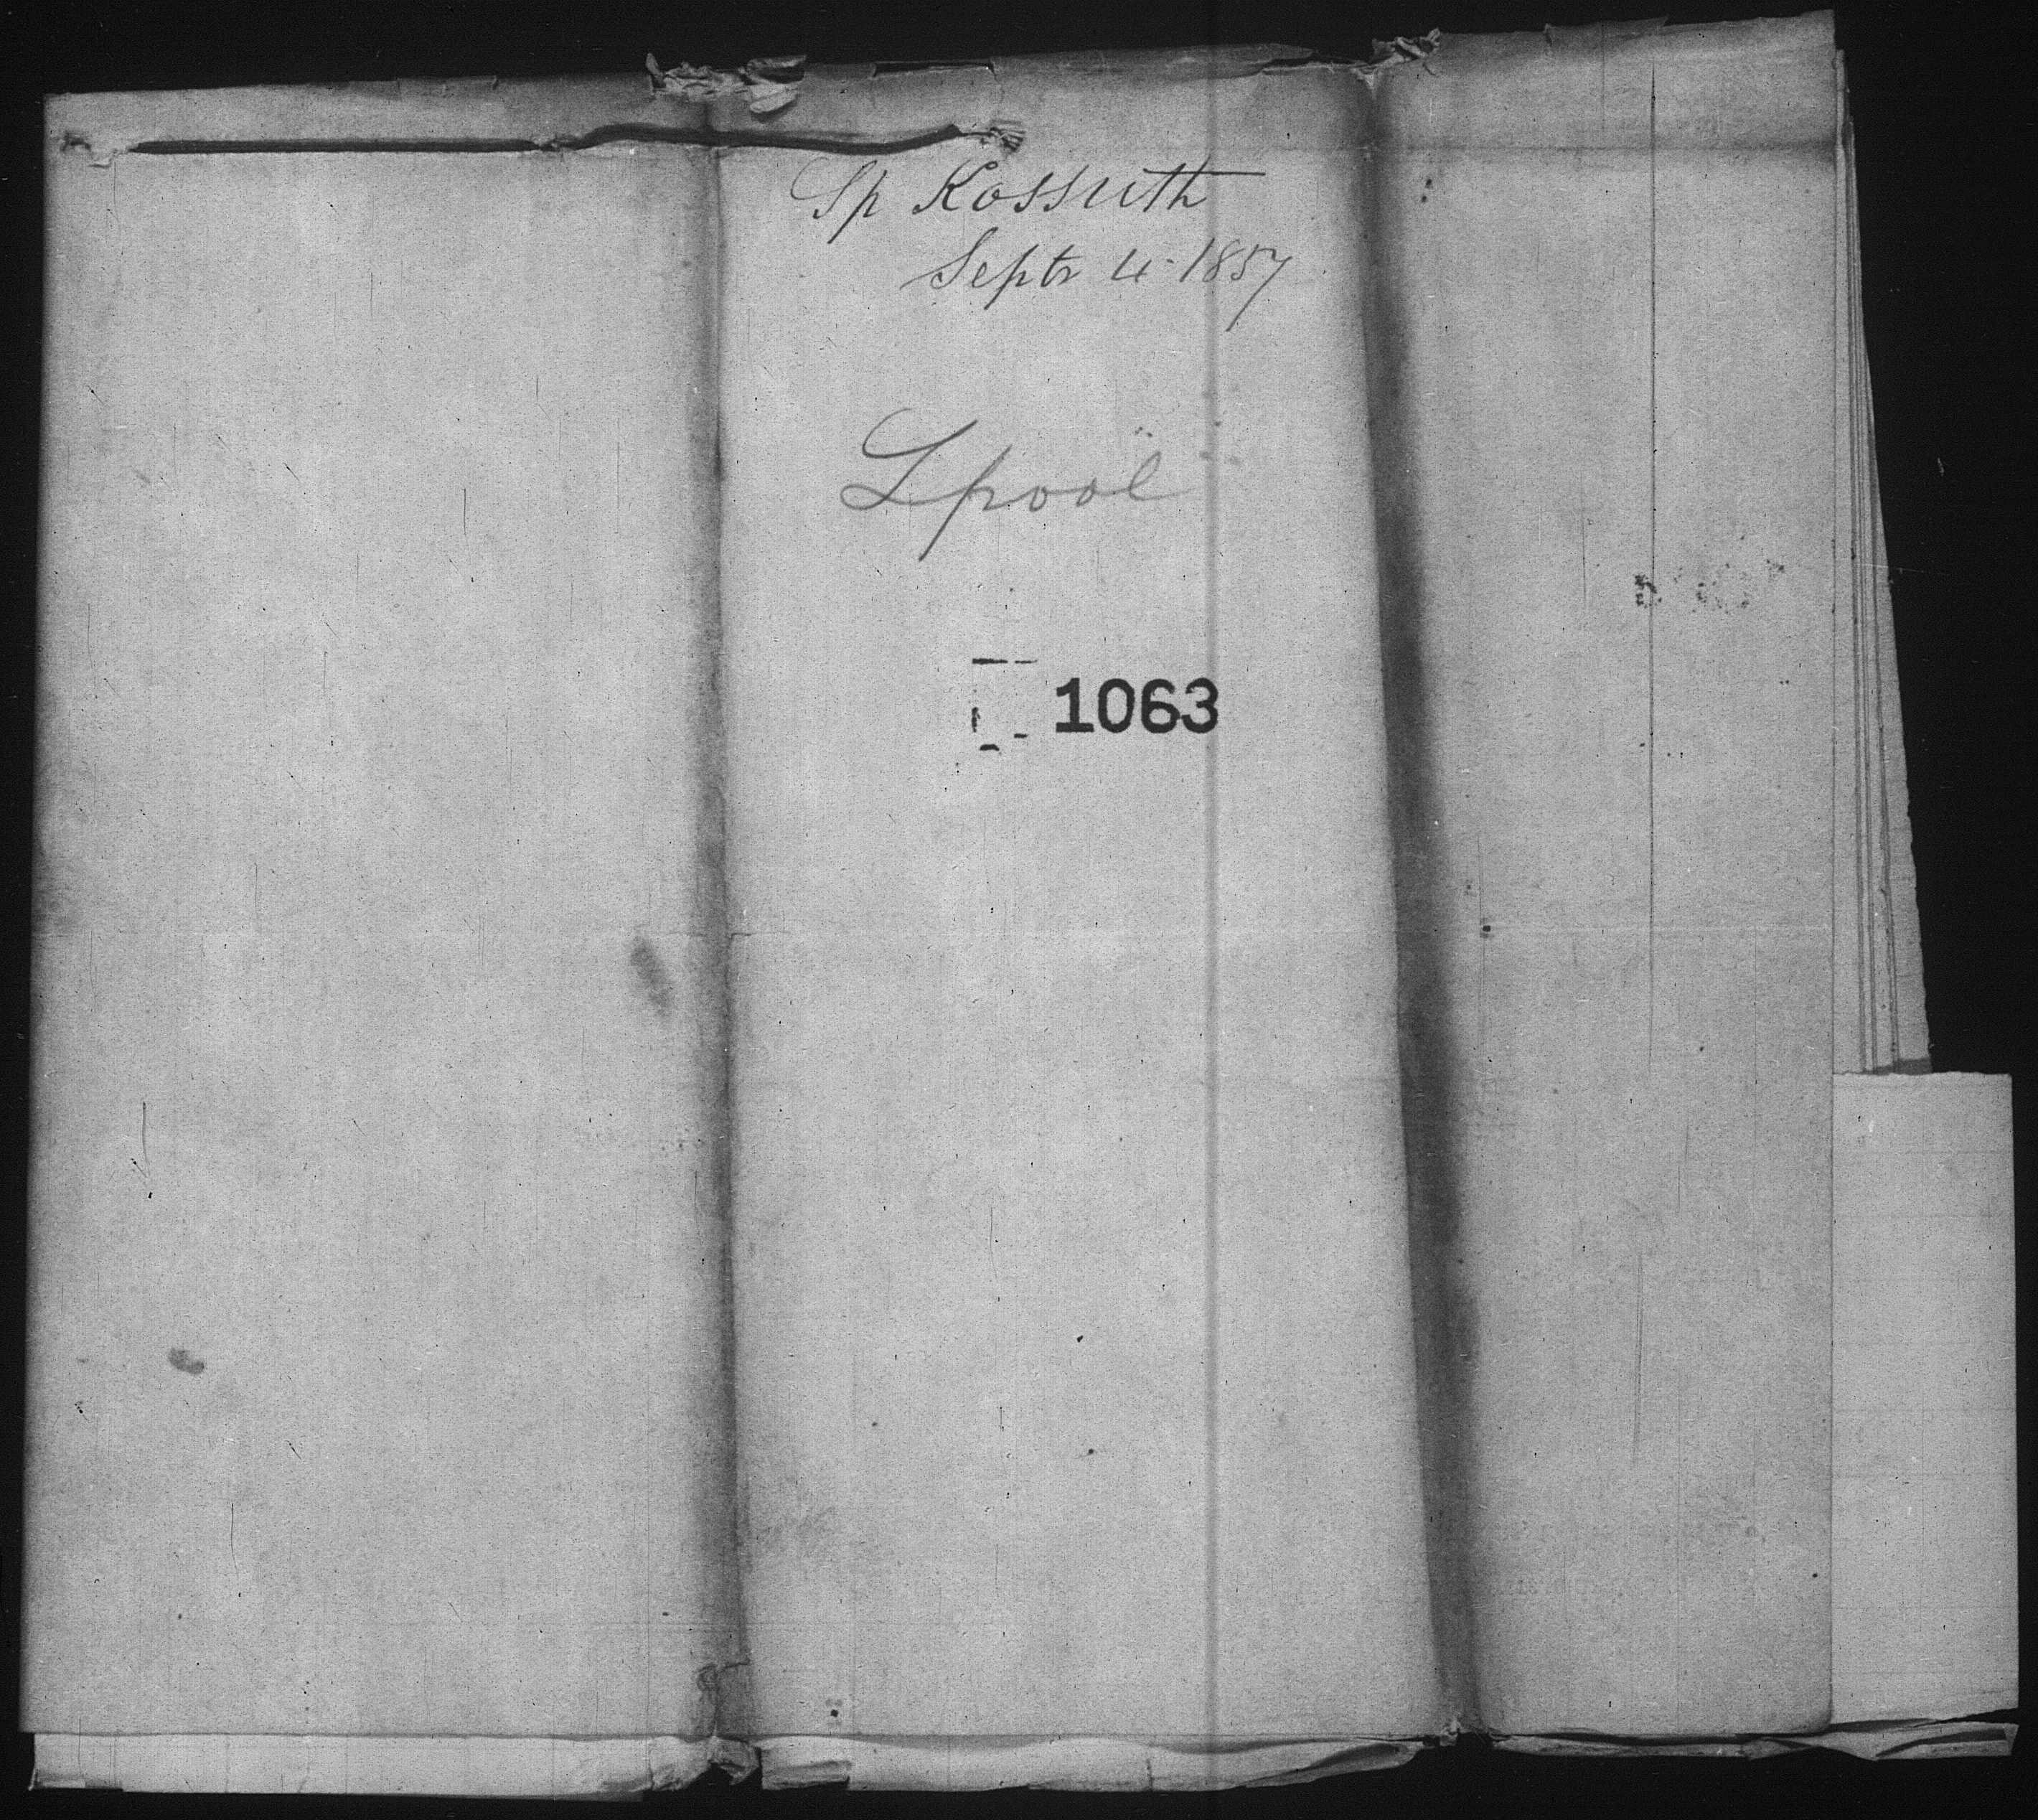 Sp Kossuth
Septr 4 1857
Lpool
1063